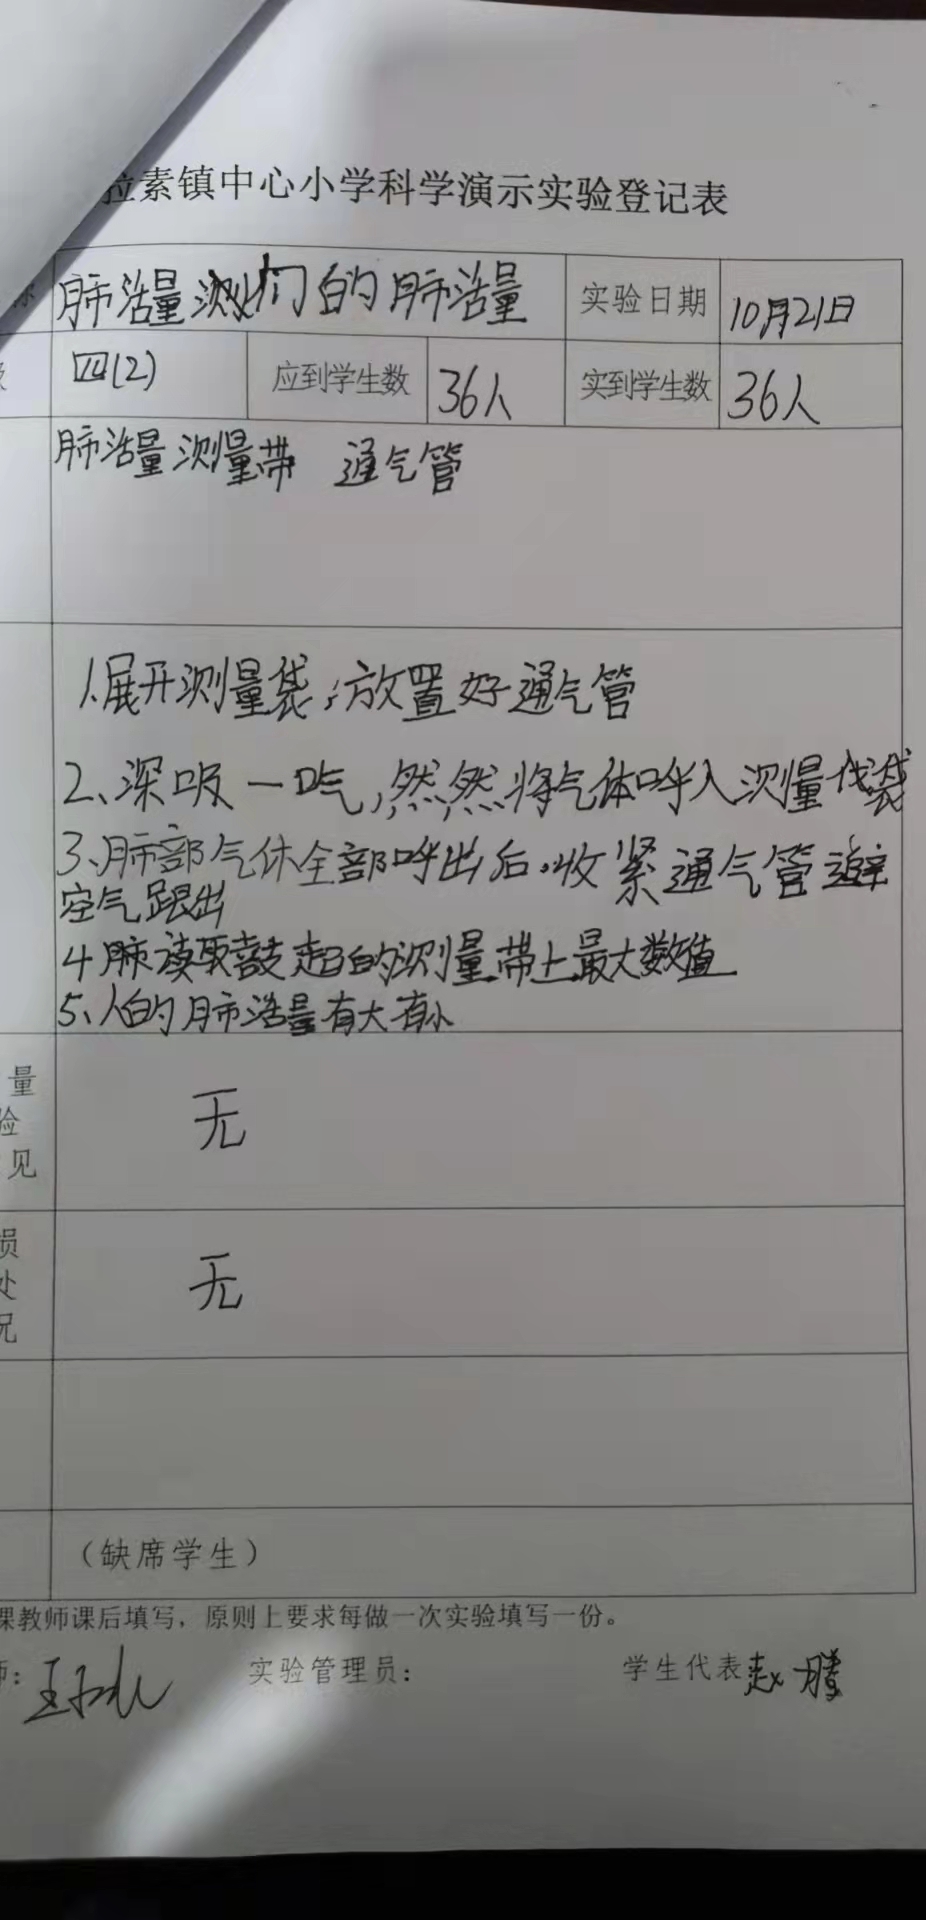 拉素镇中心小学科学演示实验登记表
肺活量测我们的肺活量 实验日期 10月21日
四(2) 应到学生数 36人 实到学生数 36人
肺活量测量带 通气管
1.展开测量袋,放置好通气管
2、深吸一口气,然,然,将气体呼入测量袋
3、肺部气体全部呼出后.收紧通气管避
空气跟出
4肺读取鼓起的测量带上最大数值
5、人的肺活量有大有小
量
验
见
无
损
处
况
无
(缺席学生)
课教师课后填写,原则上要求每做一次实验填写一份。
师: 实验管理员: 学生代表 赵腾